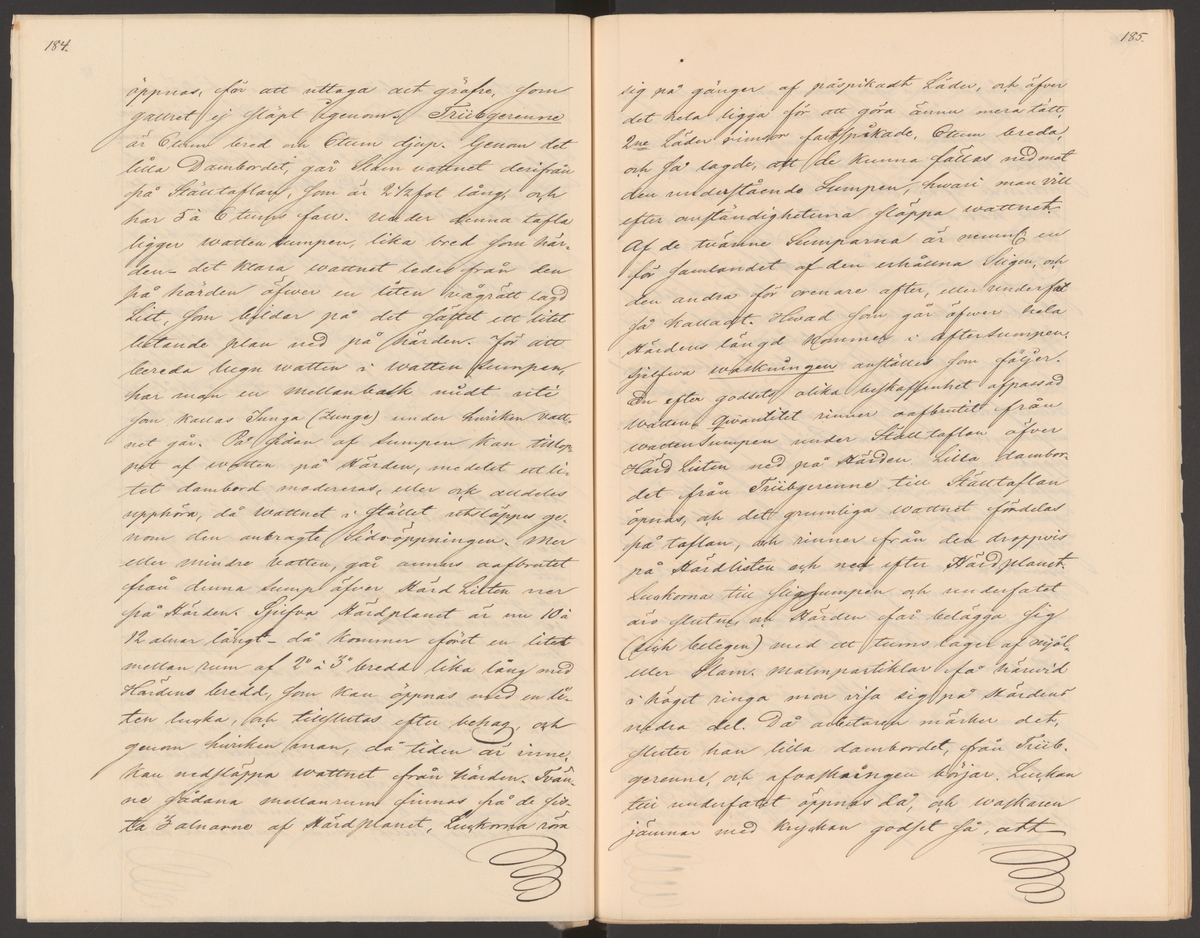 184.
öppnas, för att uttaga det gräfre, som
gallret ej släpt igenom. Trübgerenne
är 6 tum bred och 6 tum djup. Genom det
lilla Dambordet, går Slam vattnet derifrån
på Ställtaflan, som är 2 1/2 fot lång, och
har 5 à 6 tums fall. Under denna tafla
ligger watten sumpen, lika bred som här-
den – det klara wattnet ledes från den
på härden öfwer en liten vågrätt lagd
List, som bilder på det sättet ett litet
lutande plan ned på härden. För att
bereda lugn watten i watten sumpen,
har man en mellanbalk midt uti
som kallas Tunga (Zunge) under hvilken vatt-
net går. På sidan af sumpen kan tillop-
pet af watten på Härden, medelst ett li-
tet dambord modereras, eller ock alldeles
upphöra, då wattnet i stället utsläppes ge-
nom den anbragte Sidoöppningen. Mer
eller mindre vatten, går annars aafbrutet
från denna sump öfver Härd Listen ner
på Härden. Sjelfva Härdplanet är nu 10 à
12 alnar långt – då kommer först en litet
mellan rum af 2" à 3" bredd lika lång med
Härdens bredd, som kan öppnas med en li-
ten lucka, och tillslutas efter behag, och
genom hvilken man, då tiden är inne,
kan nedsläppa wattnet från härden. Twän-
ne sådana mellanrum finnas på de sis-
ta 3 alnarne af Härdplanet, Luckorna röra
185.
sig på gånger af påspikadt Läder, och öfver
det hela ligga för att göra ännu mera tätt,
2ne Läder rimsor fastspikade, 6 tum breda,
och så lagde, att de kunna fällas ned mot
den understående Sumpen, hwari man vill
efter omständigheterna släppa wattnet.
Af de tvänne Sumparna är nemnl en
för samlandet af den erhållna Sligen, och
den andra för orenare after, eller underfat
så kalladt. Hwad som går öfwer hela
Härdens längd kommer i aftersumpen.
Sjelfwa waskningen anställes som följer.
En efter godsets olika beskaffenhet afpassad
watten Qwantitet rinner oafbrutit från
wattensumpen under Ställtaflan öfver
Härd Listen ned på Härden. Lilla dambor-
det från Trübgerenne till Ställtaflan
öpnas, och det grumliga wattnet fördelas
på taflan, och rinner från den droppvis
på Härdlisten och ned efter Härdplanet.
Luckorna till sligsumpen och underfatet
äro slutne, och Härden får belägga sig
(sich belegen) med ett tums lager af mjöl-
eller Slam. Malmpartiklar få härwid
i högst ringa mon visa sig på Härdens
nedra del. Då arbetaren märker det,
sluter han lilla dambordet, från Trüb-
gerenne, och afvaskningen börjar. Luckan
till underfatet öppnas då, och waskaren
jämnar med Kryckan godset så, att